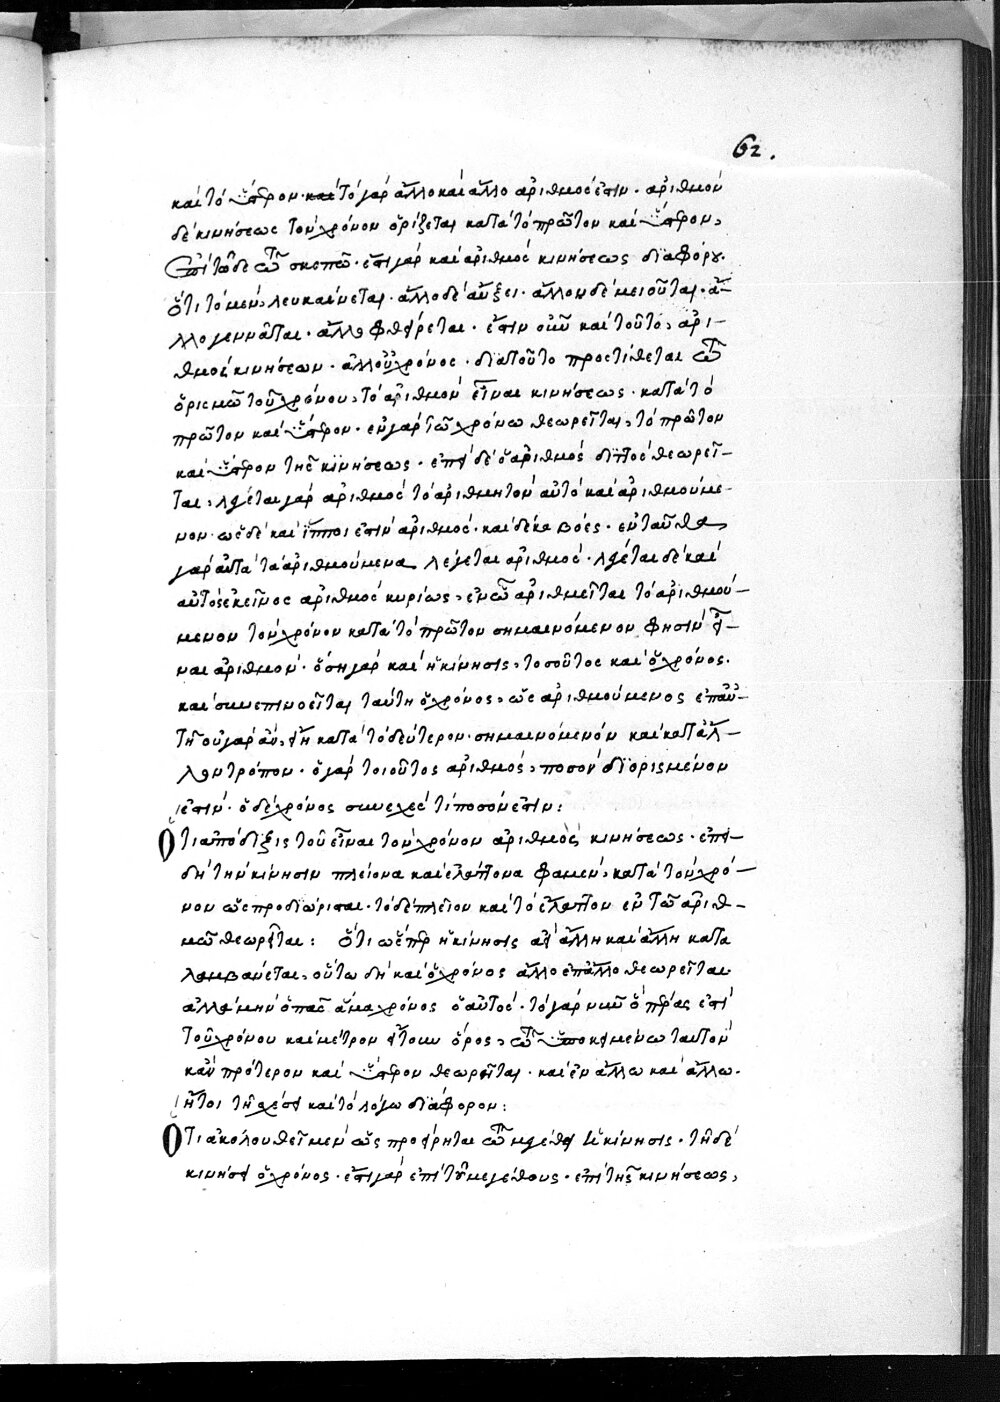 62.
καὶ τὸ ὕστερον· καὶ τὸ γὰρ ἄλλο καὶ ἄλλο ἀριθμός ἐστιν· ἀριθμὸν
δὲ κινήσεως τὸν χρόνον ὁρίζεται κατὰ τὸ πρῶτον καὶ ὕστερον,
Ἐπὶ τῶδε σκεπῶ· ἔστι γὰρ καὶ ἀριθμὸς κινήσεως διαφόρου·
ὅτι τὸ μὲν λευκαίνεται· ἄλλο δὲ αὔξει· ἄλλον δὲ μειοῦται· ἄ-
λλο γεννᾶται· ἄλλο φθείρεται· ἔστιν οὖν καὶ τοῦτο, ἀρι-
θμὸς κινήσεων· ἀλλ' οὐ χρόνος· διατοῦτο προστίθεται τῶ
ὁρισμῶ τοῦ χρόνου, τὸ ἀριθμὸν εἶναι κινήσεως· κατὰ τὸ
πρῶτον καὶ ὕστερον· ἐν γὰρ τῶ χρόνω θεωρεῖται, τὸ πρῶτον
καὶ ὕστερον τῆς κινήσεως· ἐπεὶ δὲ ὁ ἀριθμὸς διττὸς θεωρεῖ-
ται, λέγεται γὰρ ἀριθμὸς τὸ ἀριθμητὸν αὐτὸ καὶ ἀριθμούμε-
νον· ὡς δέκα ἵπποι ἐστὶν ἀριθμός· καὶ δέκα βόες· ἐνταῦθα
γὰρ αὐτὰ τὰ ἀριθμούμενα λέγεται ἀριθμός· λέγεται δὲ καὶ
αὐτὸς ἐκεῖνος ἀριθμὸς κυρίως, ἐν ᾧ ἀριθμεῖται τὸ ἀριθμού-
μενον τὸν χρόνον κατὰ τὸ πρῶτον σημαινόμενον φησὶν εἶ-
ναι ἀριθμόν· ὅση γὰρ καὶ ἡ κίνησις, τοσοῦτος καὶ ὁ χρόνος·
καὶ συνεπινοεῖται ταύτη ὁ χρόνος, ὡς ἀριθμούμενος ἐπ' αὐ-
τῆ οὐ γὰρ ἂν, εἴη κατὰ τὸ δεύτερον σημαινόμενόν καὶ κατ' ἄλ-
λον τρόπον· ὁ γὰρ τοιοῦτος ἀριθμὸς, ποσόν διορισμένον
ἐστίν· ὁ δὲ χρόνος συνεχές τι ποσόν ἐστιν:
Ὅτι ἀπόδειξις τοῦ εἶναι τὸν χρόνον ἀριθμὸς κινήσεως· ἐπει-
δὴ τὴν κίνησιν πλείονα καὶ ἐλάττονα φαμέν, κατὰ τὸν χρό-
νον ὡς προδιώρισται· τὸ δὲ πλεῖον καὶ τὸ ἔλαττον ἐν τῶ ἀριθ-
μῶ θεωρεῖται: Ὅτι ὥσπερ ἡ κίνησις ἀεὶ ἄλλη καὶ ἄλλη κατα
λαμβάνεται, οὕτω δὴ καὶ ὁ χρόνος ἄλλο ἐπ' ἄλλο θεωρεῖται
ἀλλὰ μὴν ὁ πᾶς ἅμα χρόνος ὁ αὐτός· τὸ γὰρ νῦν ὁ πέρας ἐστὶ
τοῦ χρόνου καὶ μέτρον ἤτουν ὅρος, τῶ ὑποκειμένω ταυτὸν
κἂν πρότερον καὶ ὕστερον θεωρεῖται· κἂν ἐν ἄλλω καὶ ἄλλω·
ἤτοι τῆ σχέσει καὶ τὸ λόγω διάφορον:
Ὅτι ἀκολουθεῖ μὲν ὡς προείρηται τῶ μεγέθει ἡ κίνησις· τῆ δὲ
κινήσει ὁ χρόνος· ἔστι γὰρ ἐπὶ τοῦ μεγέθους· ἐπὶ τῆς κινήσεως,